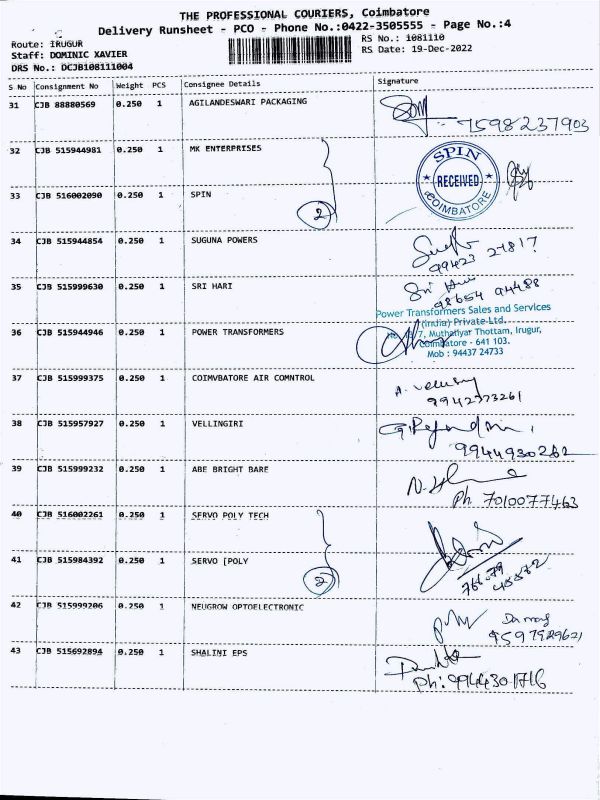 THE PROFESSIONAL COURIERS, Coimbatore
Delivery Runsheet - PCO - Phone No.:0422-3505555 - Page No.:4
Route: IRUGUR
RS No.: 1081110
Staff: DOMINIC XAVIER
RS Date: 19-Dec-2022
DRS No.: DCJB108111004
S No Consignment No Weight PCS Consignee Details Signature
31 CJB 88880569 0.250 1 AGILANDESWARI PACKAGING
7598237903
32 CJB 515944981 0.250 1 MK ENTERPRISES
SPIN
RECEIVED
COIMBATORE
33 CJB 516002090 0.250 1 SPIN
2
34 CJB 515944854 0.250 1 SUGUNA POWERS
99423 27817
35 CJB 515999630 0.250 1 SRI HARI
Sri Hari
98654 94488
Power Transformers Sales and Services
(India) Private Ltd.
7, Muthaliyar Thottam, Irugur,
Coimbatore - 641 103.
Mob : 94437 24733
36 CJB 515944946 0.250 1 POWER TRANSFORMERS
37 CJB 515999375 0.250 1 COIMVBATORE AIR COMNTROL
9942373261
38 CJB 515957927 0.250 1 VELLINGIRI
9944930262
39 CJB 515999232 0.250 1 ABE BRIGHT BARE
Ph 7010077463
40 CJB 516002261 0.250 1 SERVO POLY TECH
41 CJB 515984392 0.250 1 SERVO [POLY
2
42 CJB 515999206 0.250 1 NEUGROW OPTOELECTRONIC
9597929621
43 CJB 515692894 0.250 1 SHALINI EPS
Ph: 9944301716